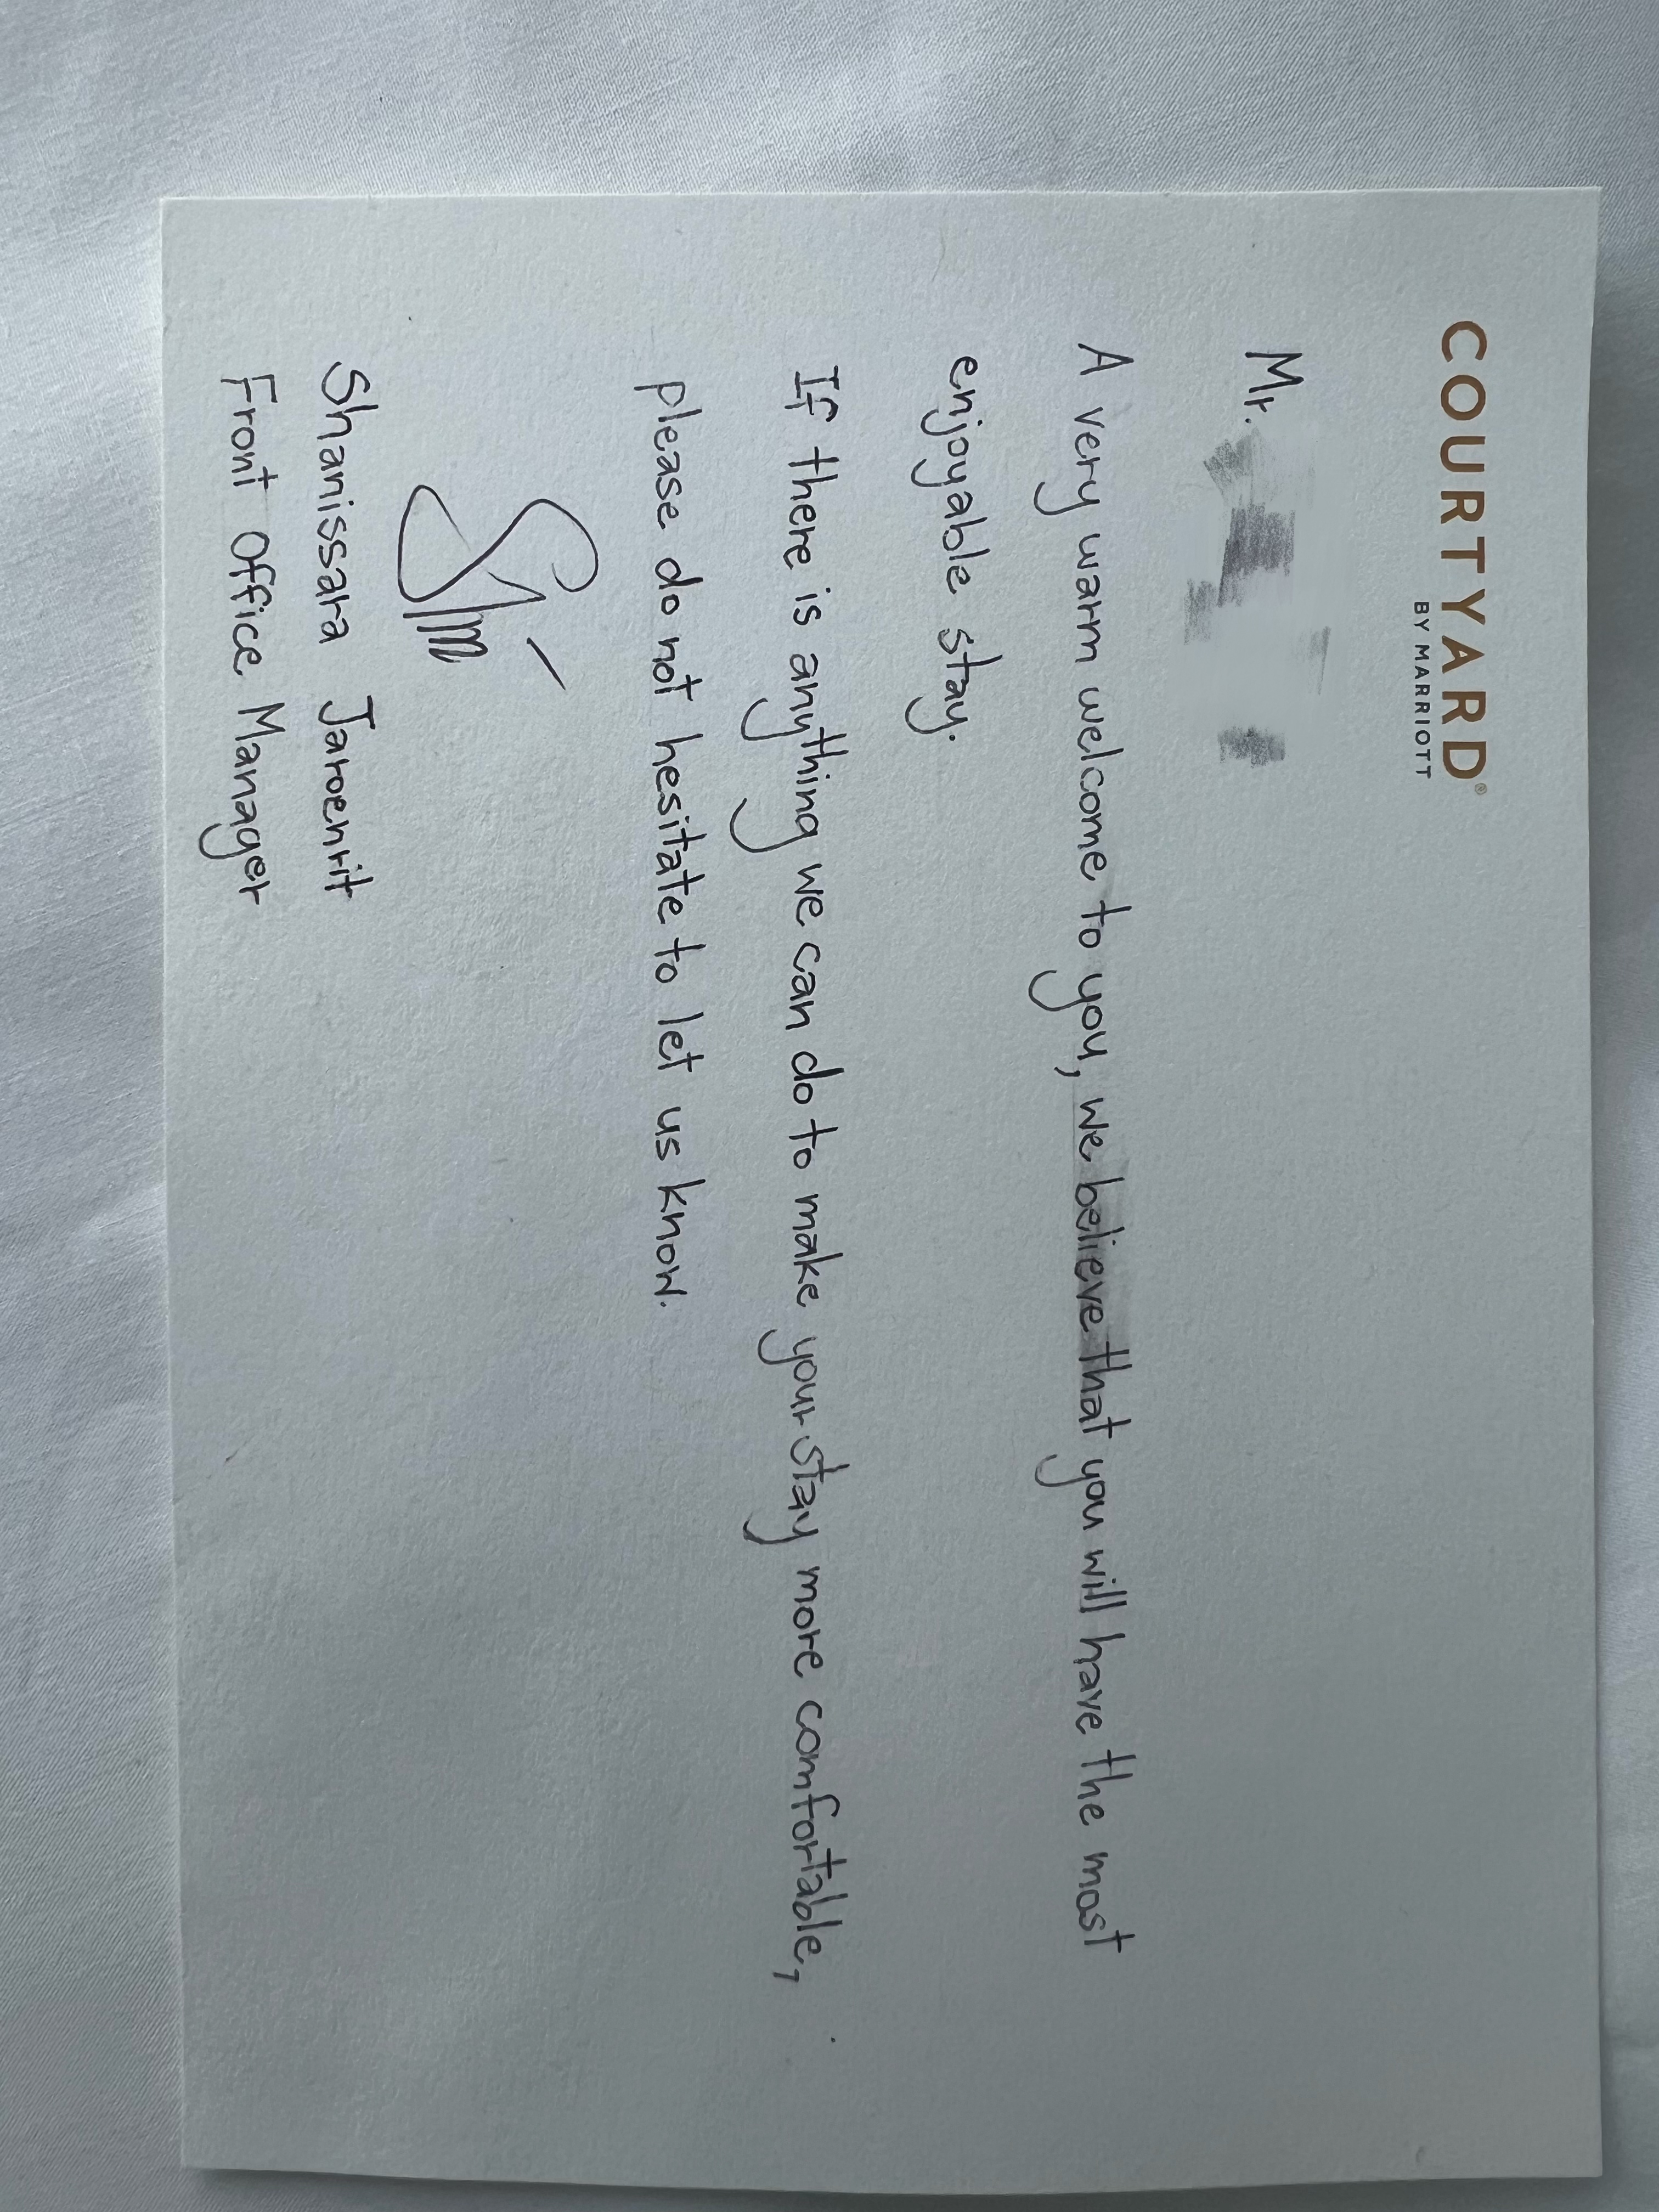 COURTYARD®
BY MARRIOTT
Mr.
A very warm welcome to you, we believe that you will have the most
enjoyable stay.
If there is anything we can do to make your stay more comfortable,
please do not hesitate to let us know.
Shanissara Jaroenrit
Front Office Manager